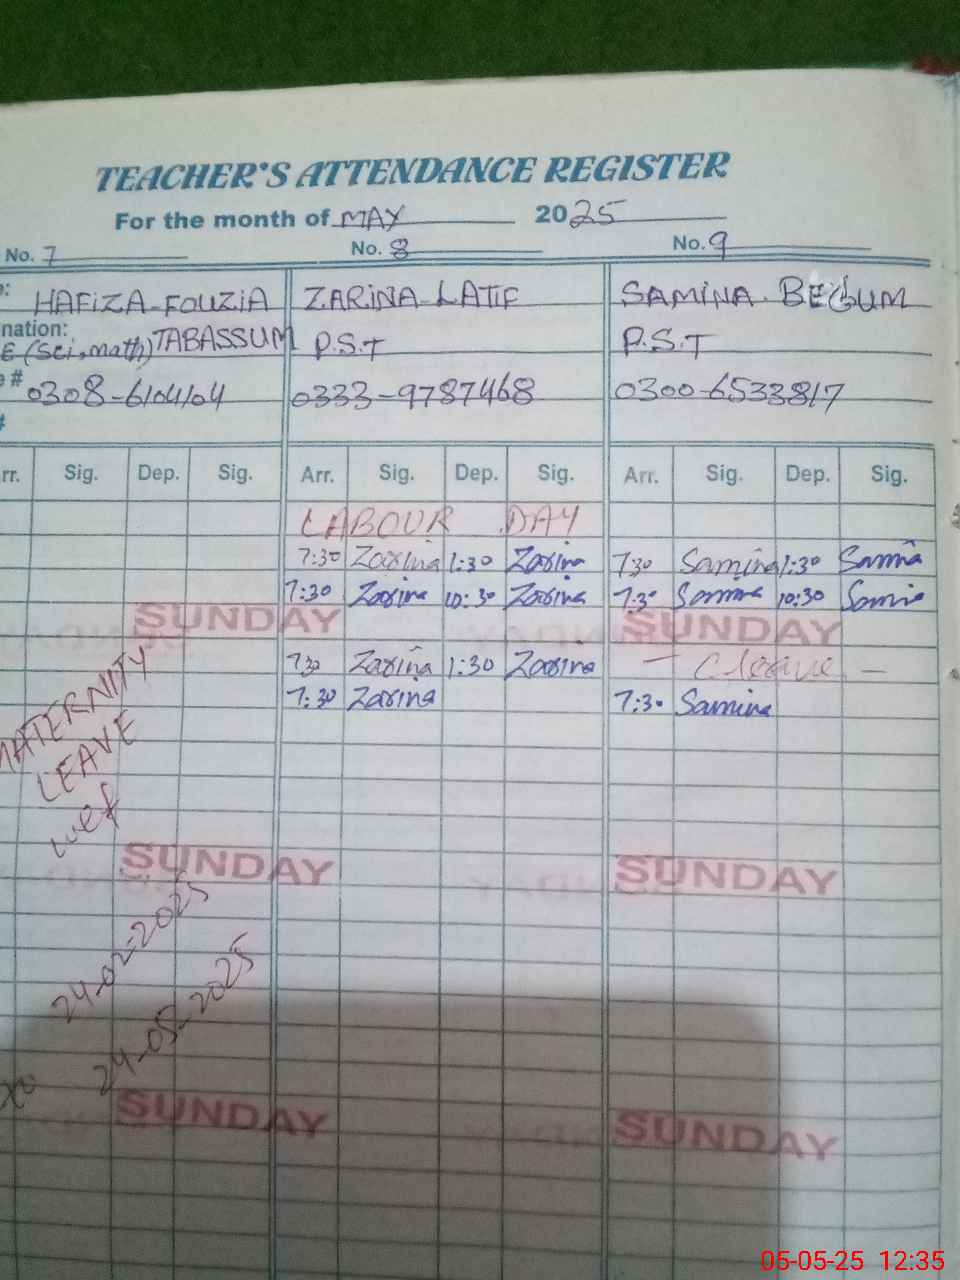 TEACHER'S ATTENDANCE REGISTER
For the month of MAY 2025
No. 7 No. 8 No. 9
HAFIZA FOUZIA ZARINA LATIF SAMINA BEGUM
nation:
E (Sci, math) TABASSUM P.S.T P.S.T
# 0308-6104104 0333-9787468 0300-6533817
rr. Sig. Dep. Sig. Arr. Sig. Dep. Sig. Arr. Sig. Dep. Sig.
LABOUR DAY
7:30 Zarina 1:30 Zarina 730 Samina 1:30 Samina
7:30 Zarina 10:30 Zarina 7:30 Samina 10:30 Samina
SUNDAY SUNDAY
730 Zarina 1:30 Zarina - C leave -
7:30 Zarina 7:30 Samina
MATERNITY
LEAVE
wef
SUNDAY SUNDAY
24-02-2025
24-05-2025
SUNDAY SUNDAY
05-05-25 12:35